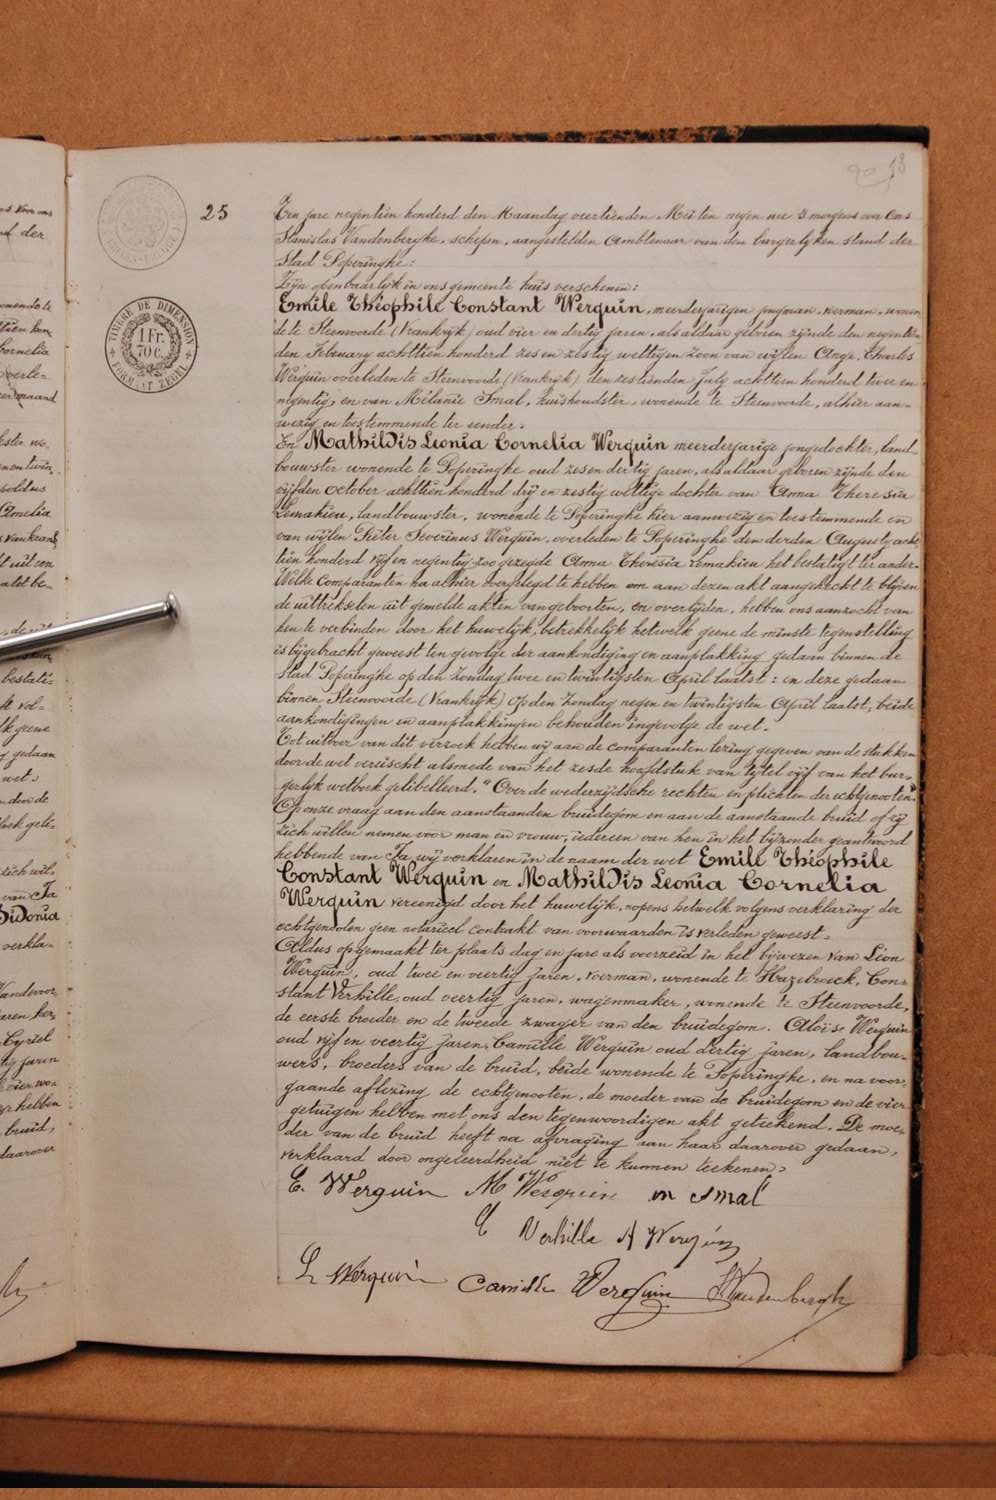 18
25
Ten jare negentien honderd den Maandag veertienden Mei ten negen ure 's morgens voor Ons
Stanislas Vandenberghe, schepen, aangestelden Ambtenaar van den burgerlyken stand der
Stad Poperinghe:
Zijn openbaarlyk in ons gemeente huis verschenen:
Emile Théophile Constant Werquin, meerderjarigen jongman, voerman, wonen
de te Steenvoorde (Vrankryk) oud vier en dertig jaren, als aldaar geboren zijnde den negentien
den February achttien honderd zes en zestig wettigen zoon van wijlen Ange, Charles
Werquin overleden te Steenvoorde (Vrankryk) den zestienden July achttien honderd twee en
negentig, en van Mélanie Smal, huishoudster, wonende te Steenvoorde, alhier aan-
wezig en toestemmende ter eender.
En Mathildis Leonia Cornelia Werquin meerderjarige jongedochter, land
bouwster wonende te Poperinghe oud zes en dertig jaren, als aldaar geboren zijnde den
vijfden October achttien honderd drij en zestig wettige dochter van Anna Theresia
Lemahieu, landbouwster, wonende te Poperinghe hier aanwezig en toestemmende en
van wijlen Pieter Severinus Werquin, overleden te Poperinghe den derden Augusty acht
tien honderd vijf en negentig zoo gezegde Anna Theresia Lemahieu het bestatigt ter ander-
Welke comparanten na alhier voorgelegd te hebben om aan dezen akt aangehecht te blijven
de uittrekselen uit gemelde akten van geboorten, en overlyden, hebben ons aanzocht van
hen te verbinden door het huwelyk, betrekkelyk hetwelk geene de minste tegenstelling
is bijgebracht geweest ten gevolge der aankondiging en aanplakking gedaan binnen de
stad Poperinghe op den Zondag twee en twintigsten April laatst: en deze gedaan
binnen Steenvoorde (Vrankryk) op den Zondag negen en twintigsten April laatst, beide
aankondigingen en aanplakkingen behouden ingevolge de wet.
Tot uitvoer van dit verzoek hebben wij aan de comparanten lezing gegeven van de stukken
door de wet vereischt alsmede van het zesde hoofdstuk van tytel vijf van het bur-
gerlyk wetboek gelibelleerd. "Over de wederzijdsche rechten en plichten der echtgenooten"
Op onze vraag aan den aanstaanden bruidegom en aan de aanstaande bruid of zij
zich willen nemen voor man en vrouw, iedereen van hen in het bijzonder geantwoord
hebbende van Ja wij verklaren in de naam der wet Emile Théophile
Constant Werquin en Mathildis Leonia Cornelia
Werquin vereenigd door het huwelyk, nopens hetwelk volgens verklaring der
echtgenooten geen notarieel contrakt van voorwaarden is verleden geweest.
Aldus opgemaakt ter plaats dag en jare als voorzeid in het bijwezen van Léon
Werquin, oud twee en veertig jaren, voerman, wonende te Hazebroeck, Con-
stant Verhille, oud veertig jaren, wagenmaker, wonende te Steenvoorde,
de eerste broeder en de tweede zwager van den bruidegom. Aloïse Werquin
oud vijf en veertig jaren, Camille Werquin oud dertig jaren, landbou-
wers, broeders van de bruid, beide wonende te Poperinghe, en na voor-
gaande aflezing de echtgenooten, de moeder van de bruidegom en de vier
getuigen hebben met ons den tegenwoordigen akt geteekend. De moe-
der van de bruid heeft na afvraging aan haar daarover gedaan,
verklaard door ongeleerdheid niet te kunnen teekenen.
E. Werquin M Werquin m Smal
C Verhille A Werquin
L Werquin Camille Werquin S Vandenberghe
TIMBRE DE DIMENSION
1 Fr.
70 C.
FORMAAT ZEGEL